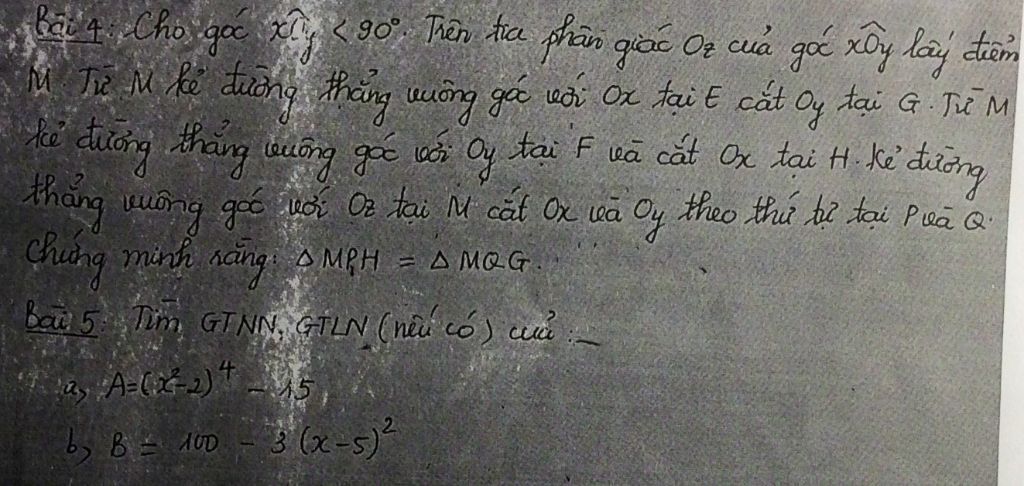 Bài 4: Cho góc xÔy < 90°. Trên tia phân giác Oz của góc xÔy lấy điểm
M. Từ M kẻ đường thẳng vuông góc với Ox tại E cắt Oy tại G. Từ M
kẻ đường thẳng vuông góc với Oy tại F và cắt Ox tại H. Kẻ đường
thẳng vuông góc với Oz tại M cắt Ox và Oy theo thứ tự tại P và Q.
Chứng minh rằng: △MPH = △MQG.
Bài 5: Tìm GTNN, GTLN (nếu có) của:
a, A=(x²-2)⁴ - 15
b, B = 100 - 3(x-5)²